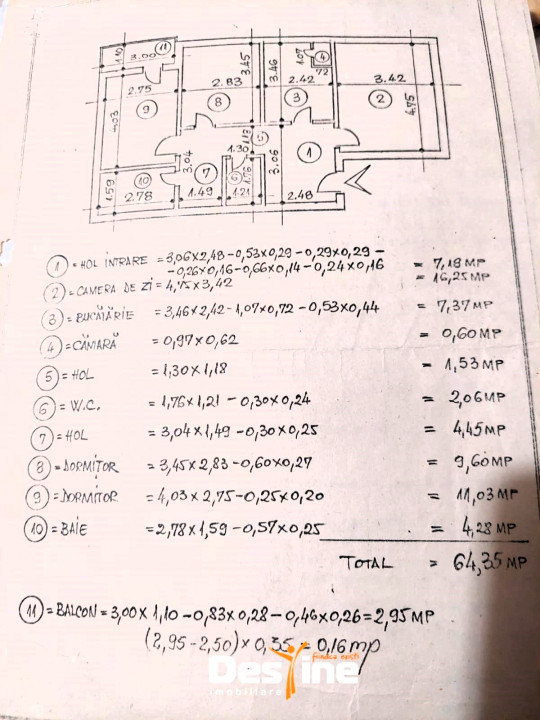 1.10
3.00
11
2.75
9
4.03
2.83
3.45
8
3.46
2.42
1.07
4
.72
3
3.42
2
4.75
1.30
1.18
5
3.06
1
2.48
3.04
7
1.49
6
1.76
1.21
10
1.59
2.78
1 = HOL INTRARE = 3,06x2,48-0,53x0,29-0,29x0,29-
-0,26x0,16-0,66x0,14-0,24x0,16 = 7,18 MP
2 = CAMERA DE ZI = 4,75x3,42 = 16,25 MP
3 = BUCĂTĂRIE = 3,46x2,42-1,07x0,72-0,53x0,44 = 7,37 MP
4 = CĂMARĂ = 0,97x0,62 = 0,60 MP
5 = HOL = 1,30x1,18 = 1,53 MP
6 = W.C. = 1,76x1,21-0,30x0,24 = 2,06 MP
7 = HOL = 3,04x1,49-0,30x0,25 = 4,45 MP
8 = DORMITOR = 3,45x2,83-0,60x0,27 = 9,60 MP
9 = DORMITOR = 4,03x2,75-0,25x0,20 = 11,03 MP
10 = BAIE = 2,78x1,59-0,57x0,25 = 4,28 MP
TOTAL = 64,35 MP
11 = BALCON = 3,00x1,10-0,83x0,28-0,46x0,26=2,95 MP
(2,95-2,50)x0,35=0,16mp
Destine
imobiliare